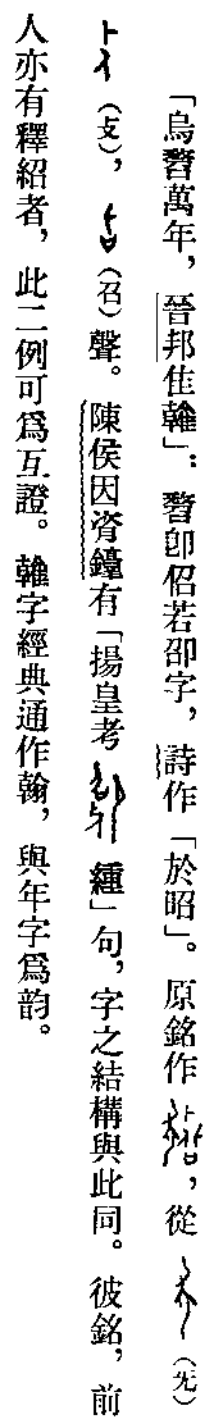 「烏𣉻萬年,晉邦隹雗」:𣉻卽佋若卲字,詩作「於昭」。原銘作,從(旡)
(攴),(召)聲。陳侯因𰯼鐘有「揚皇考緟」句,字之結構與此同。彼銘,前
人亦有釋紹者,此二例可爲互證。雗字經典通作翰,與年字爲韵。